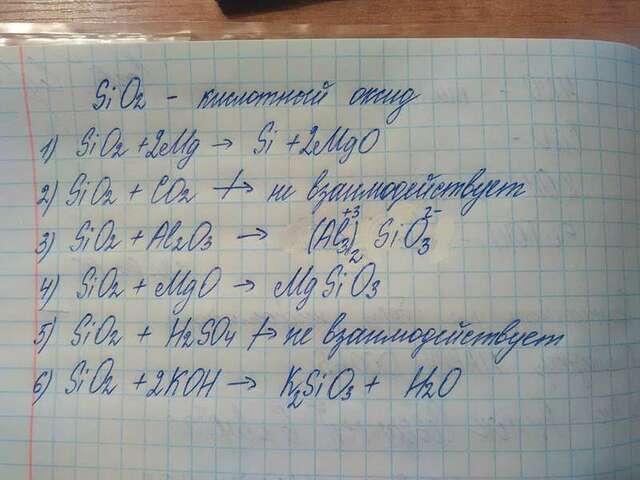 SiO2 - кислотный оксид
1) SiO2 + 2Mg → Si + 2MgO
2) SiO2 + CO2 ↛ не взаимодействует
3) SiO2 + Al2O3 → (Al3+3)2 SiO3 2-
4) SiO2 + MgO → MgSiO3
5) SiO2 + H2SO4 ↛ не взаимодействует
6) SiO2 + 2KOH → K2SiO3 + H2O